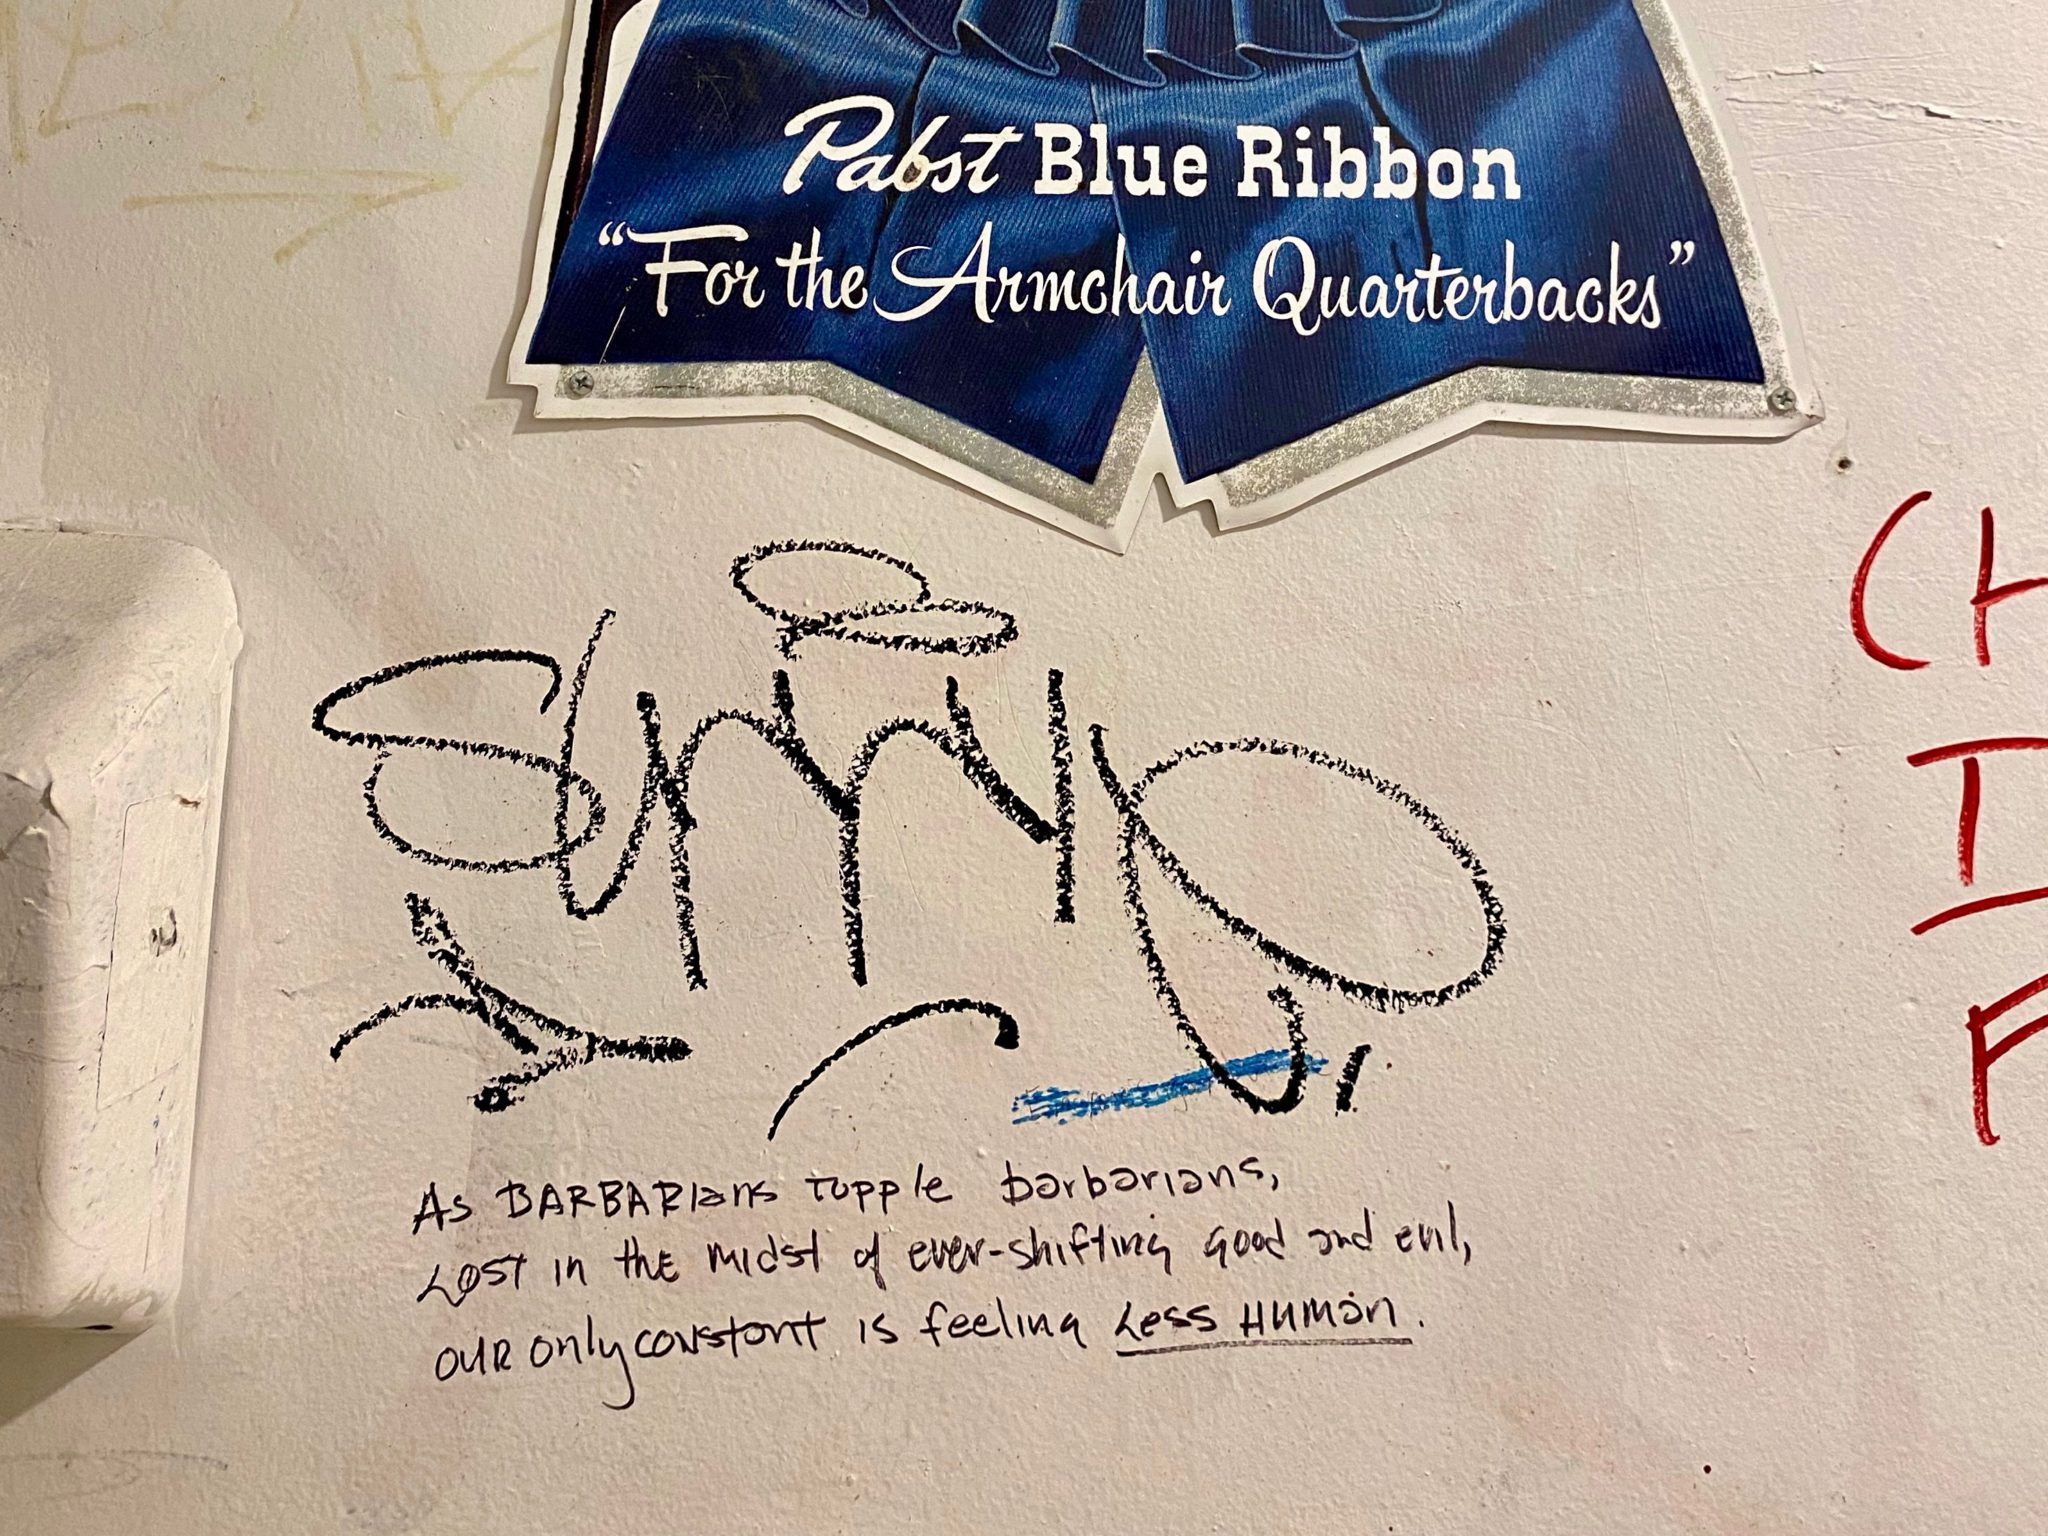 Pabst Blue Ribbon
“For the Armchair Quarterbacks”
CH
I
F
As BARBARians topple barbarians,
Lost in the midst of ever-shifting good and evil,
our only constant is feeling Less Human.